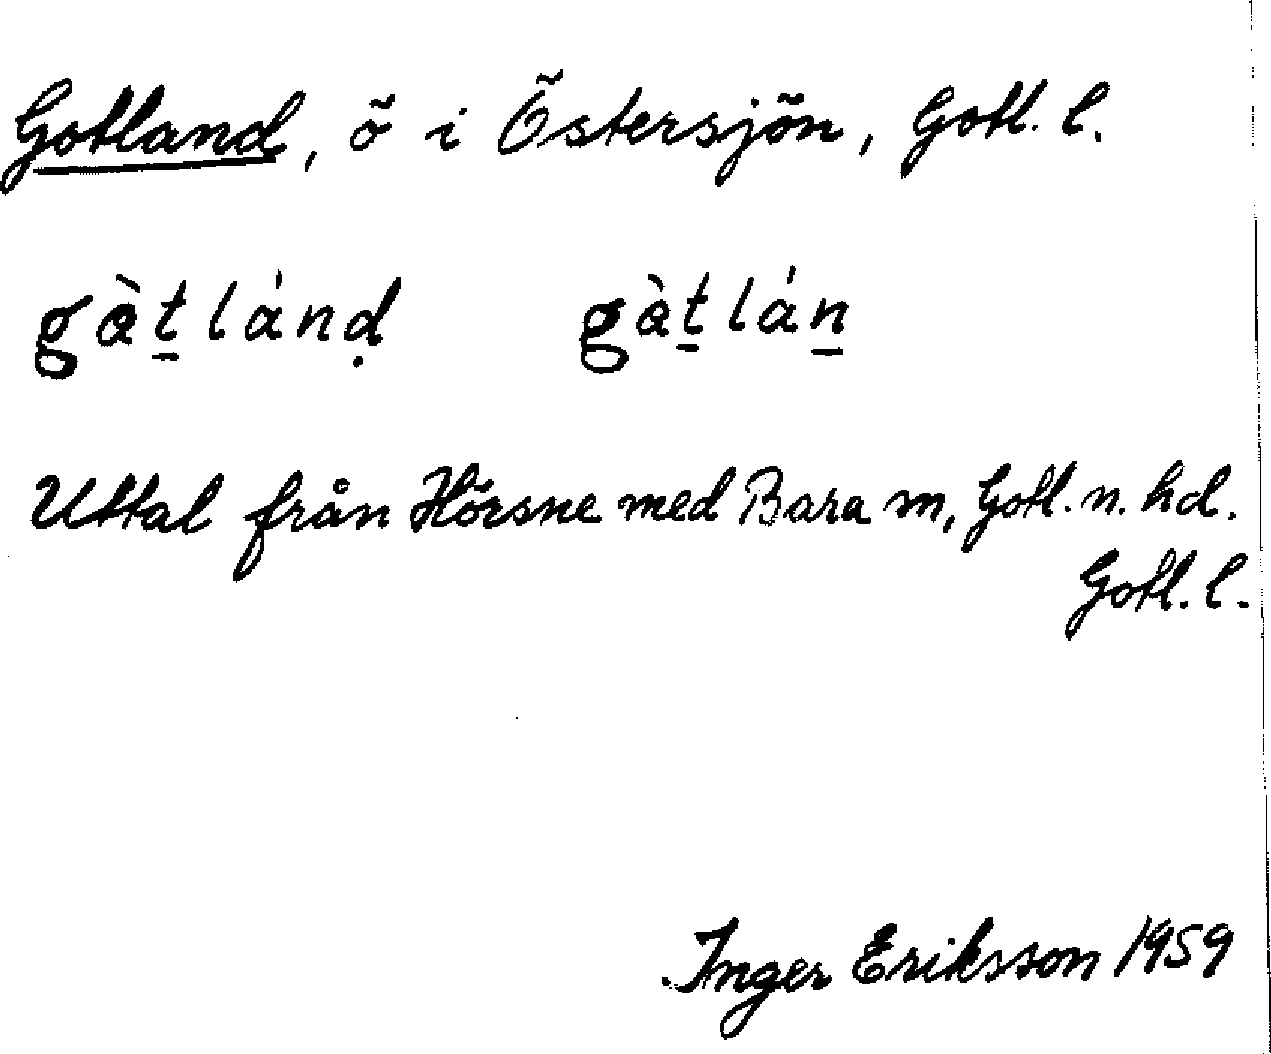 Gotland, ö i Östersjön, Gotl. l.
gàt̠lánḍ gàt̠lán̠
Uttal från Hörsne med Bara sn, Gotl. n. hd.
Gotl. l.
Inger Eriksson 1959